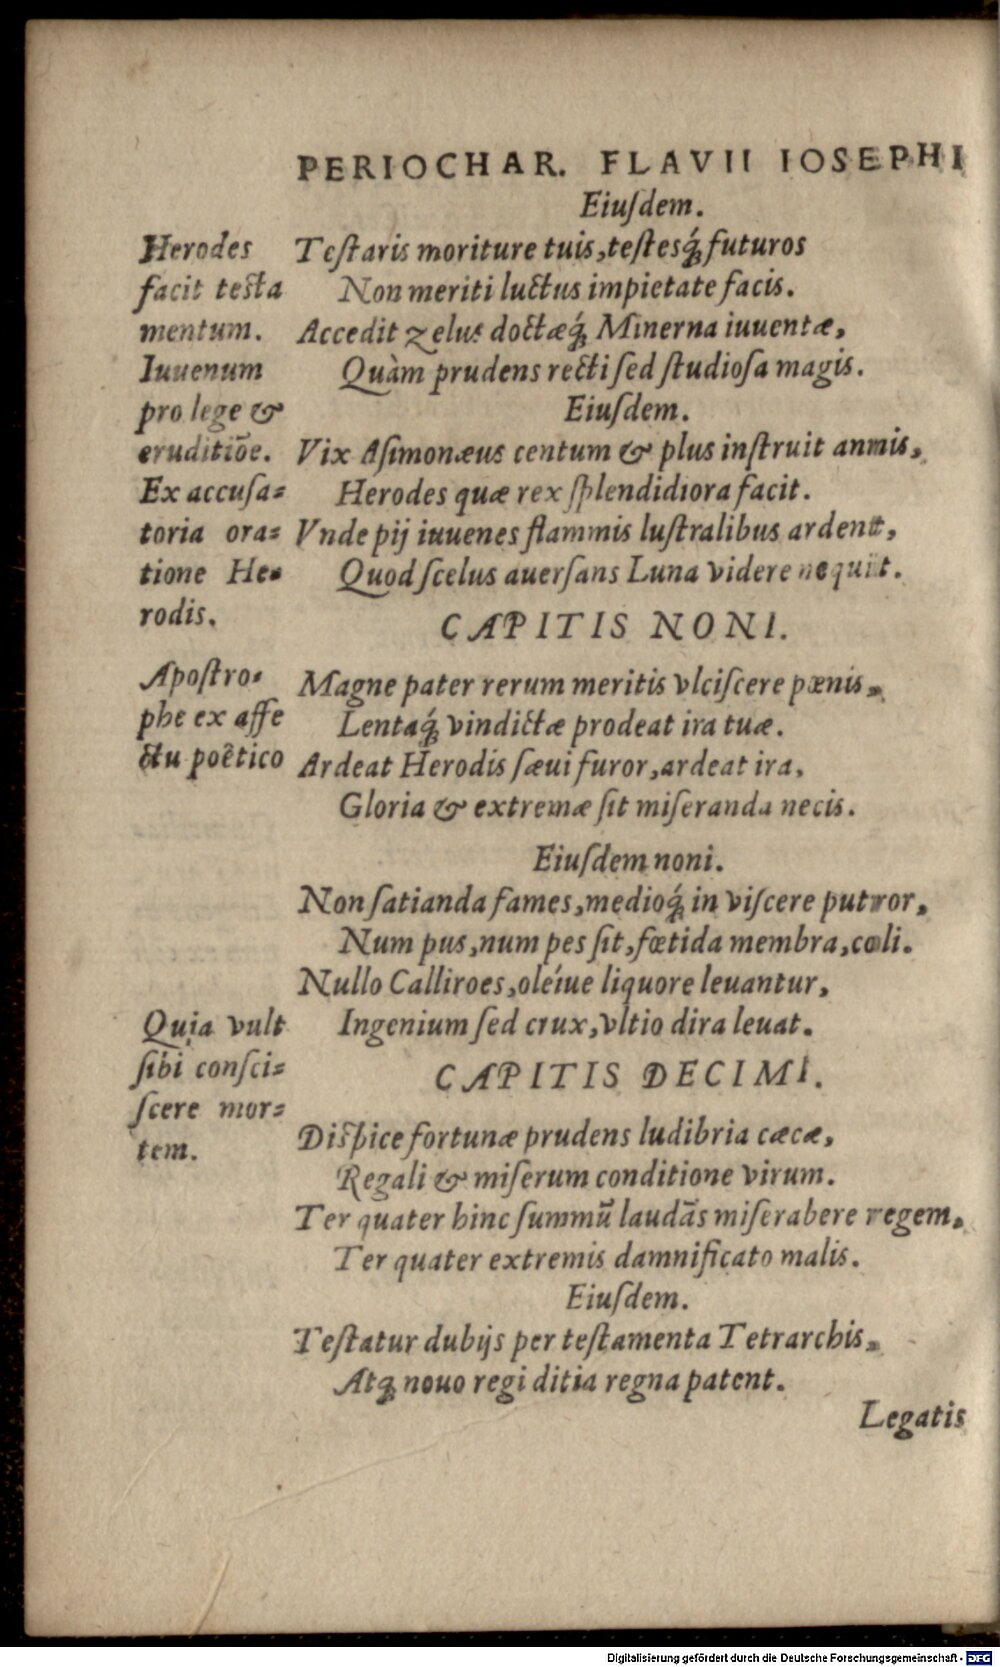 PERIOCHAR. FLAVII IOSEPHI
Eiuſdem.
Herodes
facit testa
mentum.
Iuuenum
pro lege &
eruditiōe.
Ex accuſa=
toria ora=
tione He=
rodis.
Teſtaris moriture tuis, teſtesq́; futuros
Non meriti luctus impietate facis.
Accedit zelus doctæq́; Minerna iuuentæ,
Quàm prudens recti ſed ſtudioſa magis.
Eiuſdem.
Vix Aſimonæus centum & plus inſtruit annis,
Herodes quæ rex ſplendidiora facit.
Vnde pij iuuenes flammis luſtralibus ardent,
Quod ſcelus auerſans Luna videre nequit.
CAPITIS NONI.
Apoſtro=
phe ex affe
ctu poētico
Magne pater rerum meritis vlciſcere pœnis,
Lentaq́; vindictæ prodeat ira tuæ.
Ardeat Herodis ſæui furor, ardeat ira,
Gloria & extremæ ſit miſeranda necis.
Eiuſdem noni.
Non ſatianda fames, medioq́; in viſcere putror,
Num pus, num pes ſit, fœtida membra, coli.
Nullo Calliroes, oleíue liquore leuantur,
Ingenium ſed crux, vltio dira leuat.
Quia vult
ſibi conſci=
ſcere mor=
tem.
CAPITIS DECIMI.
Diſpice fortunæ prudens ludibria cæcæ,
Regali & miſerum conditione virum.
Ter quater hinc ſummū laudās miſerabere regem,
Ter quater extremis damnificato malis.
Eiuſdem.
Teſtatur dubijs per teſtamenta Tetrarchis,
Atq; nouo regi ditia regna patent.
Legatis
Digitalisierung gefördert durch die Deutsche Forschungsgemeinschaft - DFG